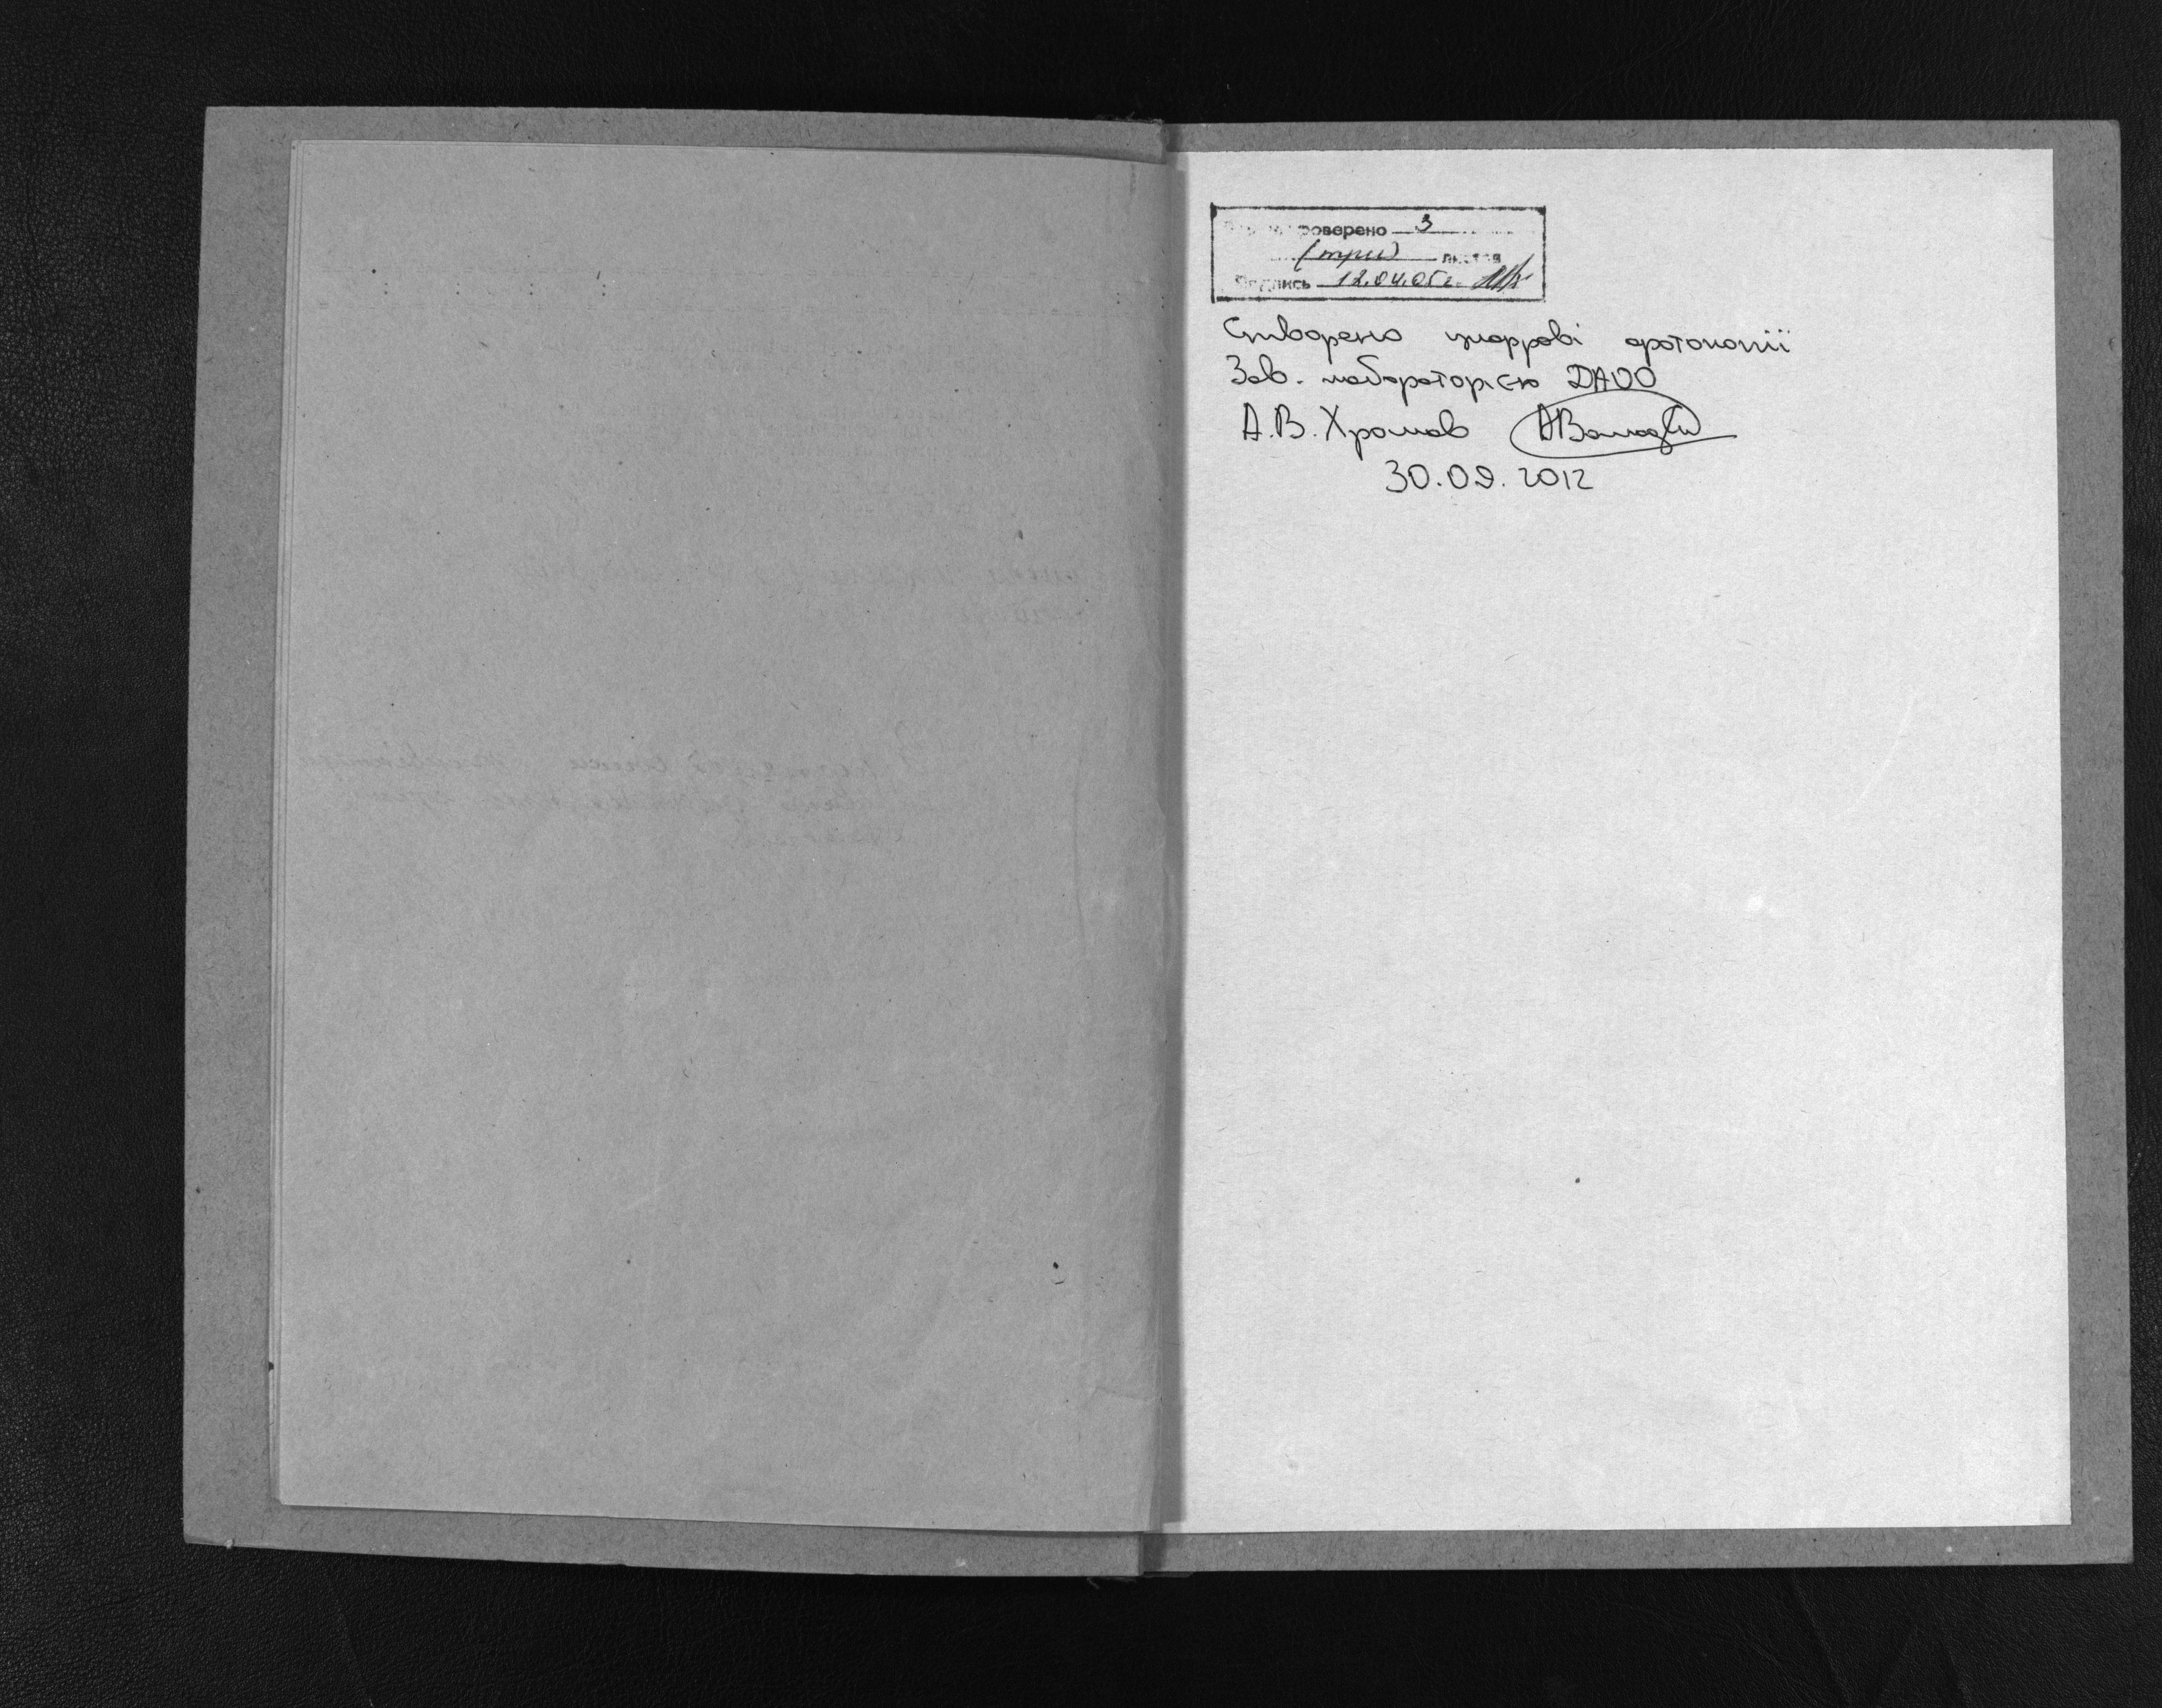 проверено 3
(три) листов
Подпись 12.04.05г.
Створено цифрові фотокопії
Зав. лабораторією ДАОО
А.В. Хромов
30.09.2012